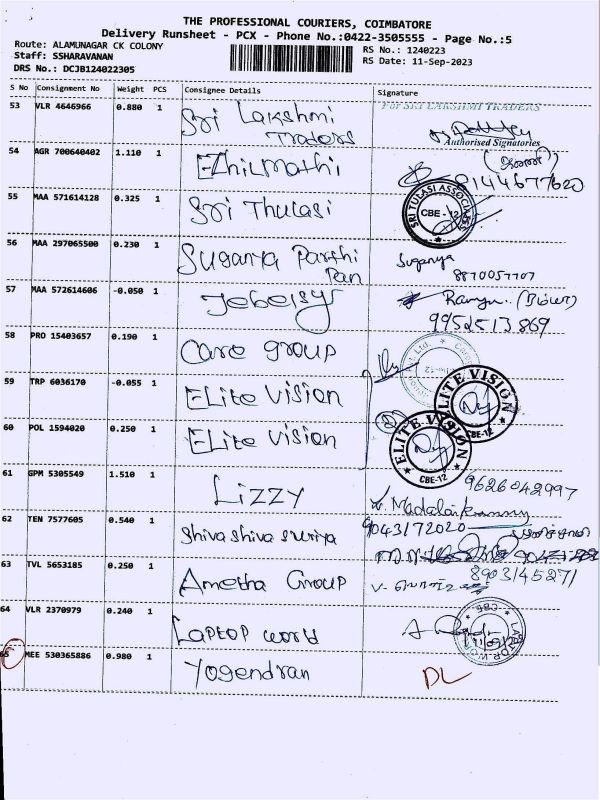 THE PROFESSIONAL COURIERS, COIMBATORE
Delivery Runsheet - PCX - Phone No.:0422-3505555 - Page No.:5
Route: ALAMUNAGAR CK COLONY
RS No.: 1240223
Staff: SSHARAVANAN
RS Date: 11-Sep-2023
DRS No.: DCJB124022305
S No Consignment No Weight PCS Consignee Details Signature
53 VLR 4646966 0.880 1 Sri Lakshmi
Traders
For SRI LAKSHMI TRADERS
Authorised Signatories
54 AGR 700640402 1.110 1 Ezhilmathi
55 MAA 571614128 0.325 1 Sri Thulasi
SRI TULASI ASSOCIATES
CBE - 12
56 MAA 297065500 0.230 1 Suganya Parthi
Pan
Suganya
8870057707
57 MAA 572614606 -0.050 1 Jebeisys
9952513869
58 PRO 15403657 0.190 1 Care group
59 TRP 6036170 -0.055 1 Elite vision
ELITE VISION
CBE-12
60 POL 1594020 0.250 1 Elite vision
ELITE VISION
CBE-12
61 GPM 5305549 1.510 1 Lizzy
9626042997
62 TEN 7577605 0.540 1 Shiva shiva suriya
9043172020
63 TVL 5653185 0.250 1 Ametha Group
8903145271
64 VLR 2370979 0.240 1 Laptop world
65 MEE 530365886 0.980 1 Yogendran
DL